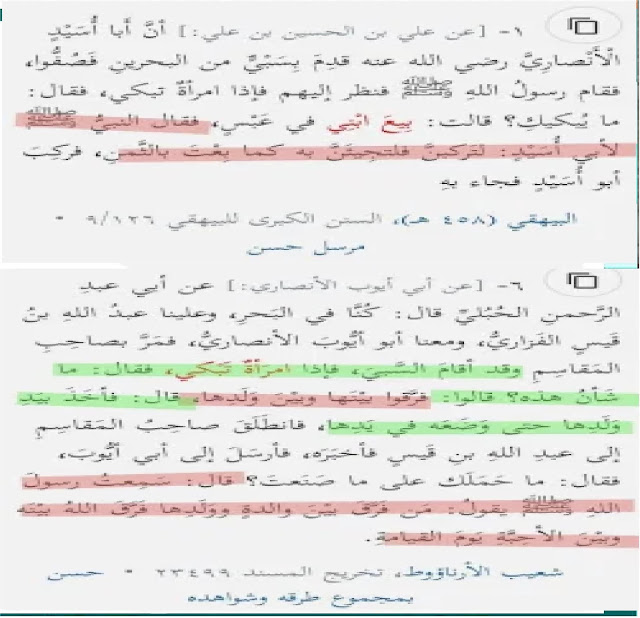 ١- [عن علي بن الحسين بن علي:] أنَّ أبا أُسَيْدٍ
الْأَنْصاريَّ رضي الله عنه قدِمَ بِسَبْيٍ من البحرينِ فَصُفُّوا،
فقام رسولُ اللهِ ﷺ فنظر إليهم فإذا امرأةٌ تبكي، فقال:
ما يُبكيكِ؟ قالت: بِيعَ ابْنِي في عَبْسٍ، فقال النبيُّ ﷺ
لأبي أُسَيْدٍ: لتركبَنَّ فلتجيئَنَّ به كما بِعْتَ بالثَّمنِ، فركبَ
أبو أُسَيْدٍ فجاء بِهِ
البيهقي (٤٥٨ هـ)، السنن الكبرى للبيهقي ٩/١٢٦ •
مرسل حسن
٦- [عن أبي أيوب الأنصاري:] عن أبي عبدِ
الرَّحمنِ الحُبُليِّ قال: كُنَّا في البَحرِ، وعلينا عبدُ اللهِ بنُ
قَيسٍ الفَزاريُّ، ومعنا أبو أيُّوبَ الأنصاريُّ، فمَرَّ بصاحِبِ
المَقاسِمِ وقد أقامَ السَّبيَ، فإذا امرأةٌ تَبكي، فقال: ما
شَأنُ هذه؟ قالوا: فرَّقوا بيْنَها وبيْنَ وَلَدِها، قال: فأخَذَ بيَدِ
وَلَدِها حتى وَضَعَه في يَدِها، فانطَلَقَ صاحِبُ المَقاسِمِ
إلى عبدِ اللهِ بنِ قَيسٍ فأخبَرَه، فأرسَلَ إلى أبي أيُّوبَ،
فقال: ما حَمَلَك على ما صَنَعتَ؟ قال: سَمِعتُ رسولَ
اللهِ ﷺ يقولُ: مَن فَرَّقَ بيْنَ والدةٍ ووَلَدِها فَرَّقَ اللهُ بيْنَه
وبيْنَ الأحِبَّةِ يَومَ القيامةِ.
شعيب الأرناؤوط، تخريج المسند ٢٣٤٩٩ • حسن
بمجموع طرقه وشواهده